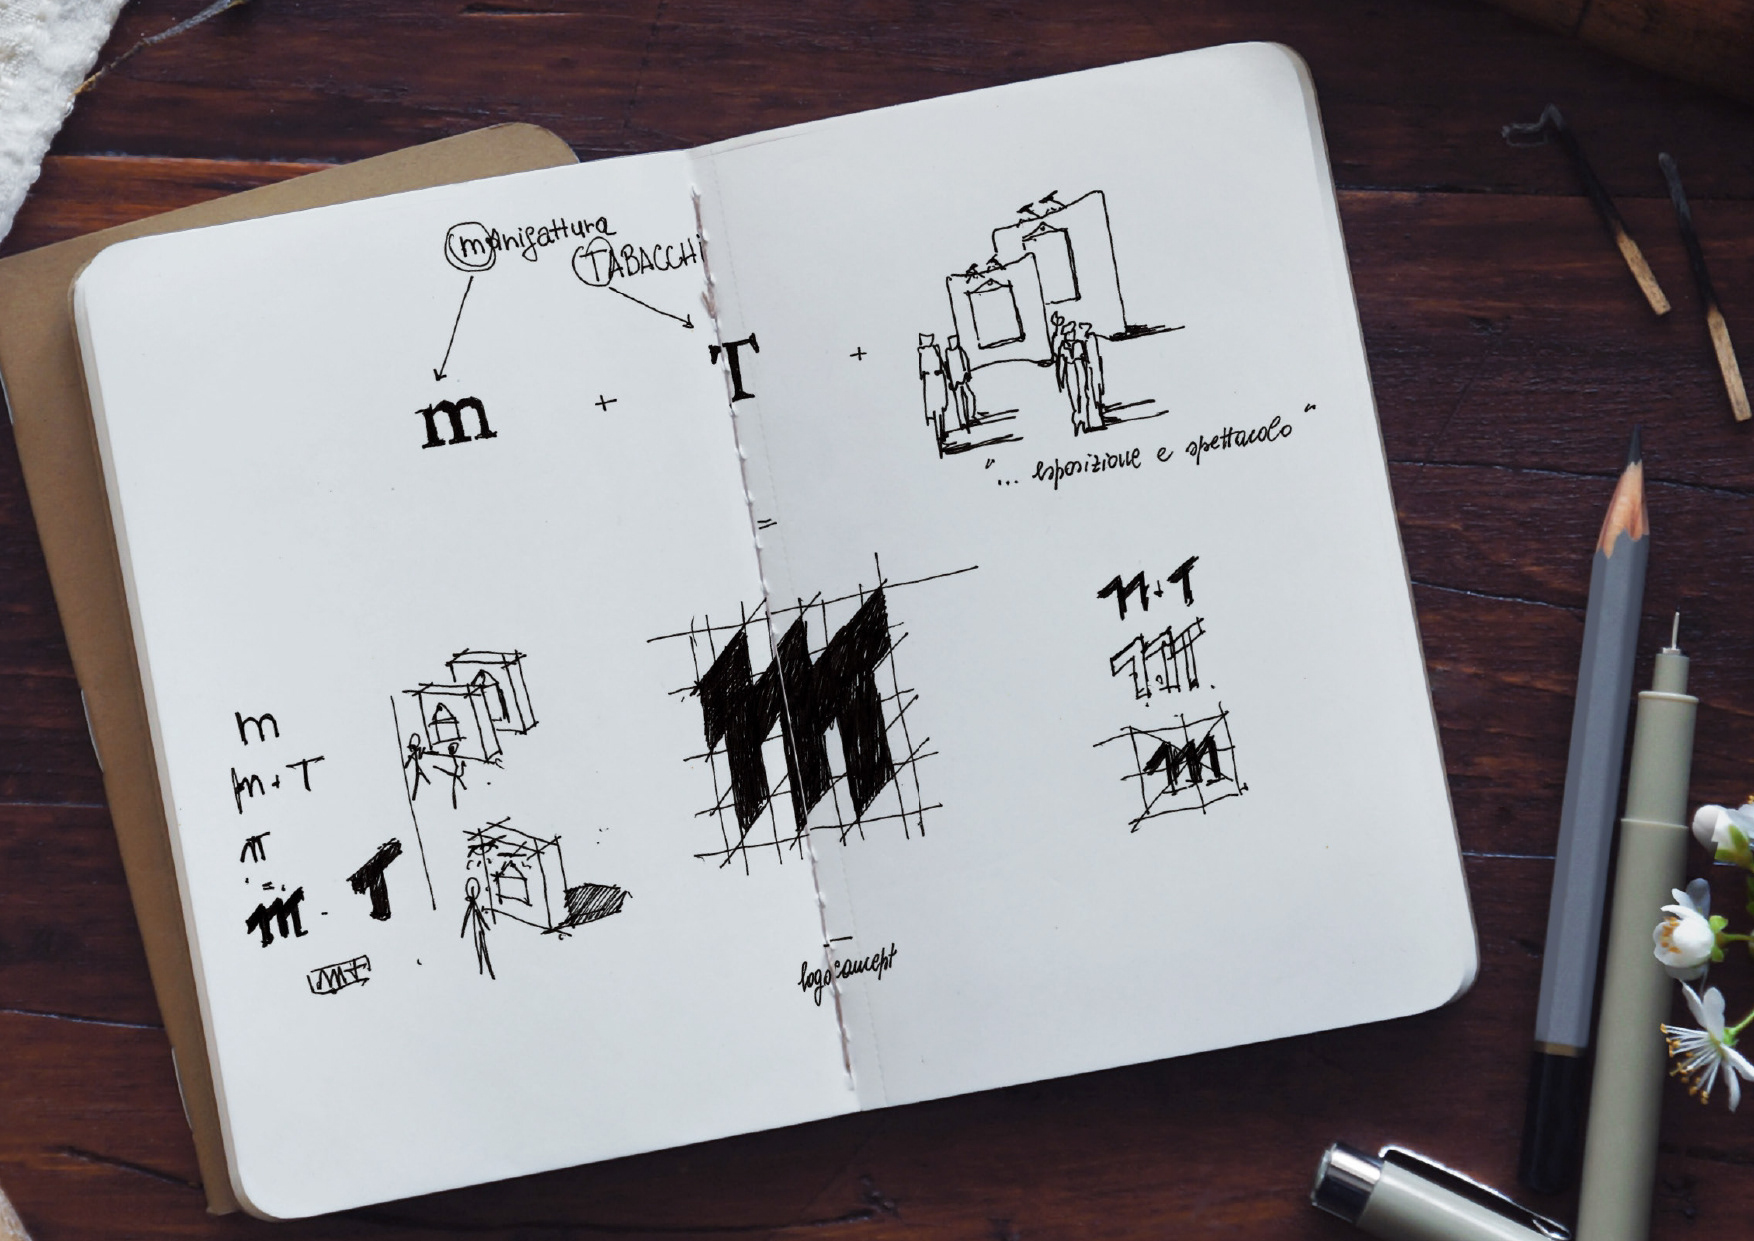 manifattura
TABACCHi
m + T +
"... esposizione e spettacolo"
=
m+T
m
m+T
m
=
m - T
m
m+T
logo concept